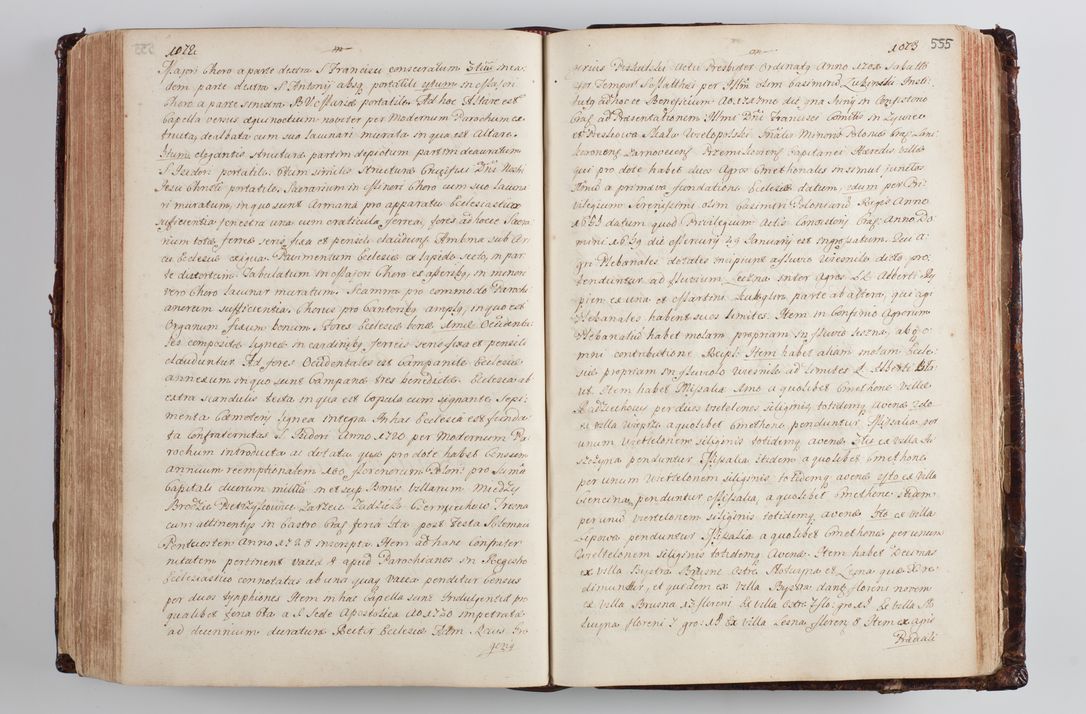 1072.
Majori Choro a parte dextra S Francisci consecratum 3tiu in ea
dem parte dextra S Antonij absq portatili 4tum in Majori
Choro a parte sinistra B V Mariæ portatile. Ad hoc Altare est
Capella versus æquinoctium noviter per Modernum Parochum ex
tructa, dealbata cum suo Lacunari murata in qua est Altare
5tum elegantis structuræ partim depictum partim deauratum
S Isidori portatile. 6tum similis structuræ Crucifixi Dni Nostri
Jesu Christi portatile. Sacrarium in Minori Choro cum suo Lacuna
ri muratum, in quo sunt Armaria pro apparatu Ecclesiastico
sufficientia fenestra una cum craticula ferrea, fores ad hocce Sacra
rium totæ ferreæ sera fixa et pensili claudunt Ambona sub Ar
cu Ecclesiæ exigua. Pavimentum Ecclesiæ ex lapide secto, in par
te Tabulatum in Majori Choro ex asseribq, in minori
vero Choro Lacunar muratum. Scamna pro commodo Parochi
anorum sufficientia. Chorus pro Cantoribq amplq, in quo est
Organum fidum bonum. Fores Ecclesiæ bonæ Occidenta
les compositæ ligneæ in cardinibq ferreis sera fixa et pensili
clauduntur Ad fores Occidentales est Campanile Ecclesiæ
annexum in quo sunt Campanæ tres benedictæ. Ecclesia ab
extra scandulis tecta in qua est Copula cum signante. Sepi
menta Cœmeterij lignea integra. In hac Ecclesia est funda
ta Confraternitas S. Isidori Anno 1720 per Modernum Pa
rochum introducta ac dotata quæ pro dote habet Censum
annuum reemptionalem 180 florenorum Polon: pro summa
Capitali duorum millia in et sup Bonis Villarum Miedzy
Brodzie Pietrzykowice Zarzecze Zadziele Czerniechow Tresna
cum attinentijs in Castro Crac feria 3tia post Festa Solemnia
Pentecosten Anno 1728 inscripta. Item ad hanc Confrater
nitatem pertinent vaccæ 8 apud Parochianos in Regestro
Ecclesiastico connotatas ab una quaq vacca penditur census
per duos tymphones Item in hac Capella sunt Indulgentiæ pro
qualibet feria 6ta a S Sede Apostolica A̅o̅ 1730 impetratæ
ad decennium duraturæ Rector Ecclesiæ Adm Rndus Gre
gorig
1073 555
gorius Praskulski Actu Presbiter Ordinatq Anno 1708 Sabbatho
4or Tempor S Matthei per Illm olim Casimirum Łubienski Insti
tutq ad hocce Beneficium A̅o̅ 1717mo die 7na Junij in Consistorio
Crac ad Præsentationem Illmi Dni Francisci Comitis in Zywiec
et Pieskowa Skała Wielopolski Gnalis Minoris Poloniæ Crac Lim:
koronens Zarnovecens Præmislioviens Capitanei Hæredis villæ
qui pro dote habet duos Agros Cmethonales insimul junctos
1mo a primæva fundatione Ecclesiæ datum, 2dum per Pri
vilegium Serenissimi olim Casimiri Poloniarum Regis Anno
1653 datum quod Privilegium Actis Consistorij Crac Anno Do
mini 1659 die Mercurij 29 Januarij est ingrossatum. Qui A
gri Plebanales dotales incipiunt a fluvio Wiesnik dicto pro
tenduntur ad fluvium Leszna inter Agros L. L. Alberti
pien ex una et Martini Kukglin parte ab altera, qui agri
Plebanales habent suos limites. Item in Confinio Agrorum
Plebanalium habet molam propriam in fluvio Leszna, ab o
mni contributione Reipl: Item habet aliam molam Eccle:
siæ propriam in fluviolo Wiesnik ad limites L. Alberti
ut. Item habet Missalia 1mo a quolibet Cmethone Villæ
Radziechowy per duos viertelones siliginis totidemq avenæ 2do
ex villa Wieprz a quolibet Cmethone penduntur Missalia per
unum viertelonem siliginis totidemq avenæ 3tio ex villa Ju
szczyna penduntur Missalia itidem a quolibet Cmethone
per unum viertelonem siliginis totidemq avenæ 4to ex Villa
Ciencina penduntur Missalia, a quolibet Cmethone itidem
per unu viertelonem siliginis totidemq avenæ 5to ex villa
Lipowa penduntur Missalia a quolibet Cmethone per unum
viertelonem siliginis totidemq avenæ. Item habet Decimas
ex Villa Bystra Brusna Ostre Słotwina et Lesna quæ Xtræ
redimuntur, et quidem ex Villa Bystra dant floreni novem
ex Villa Brusna 12 floreni Ex Villa Ostre 7 flo: gro 15 Ex Villa Sło
twina floreni 7 gro: 15 Ex Villa Lesna floren 8 Item ex agris
Prædiali